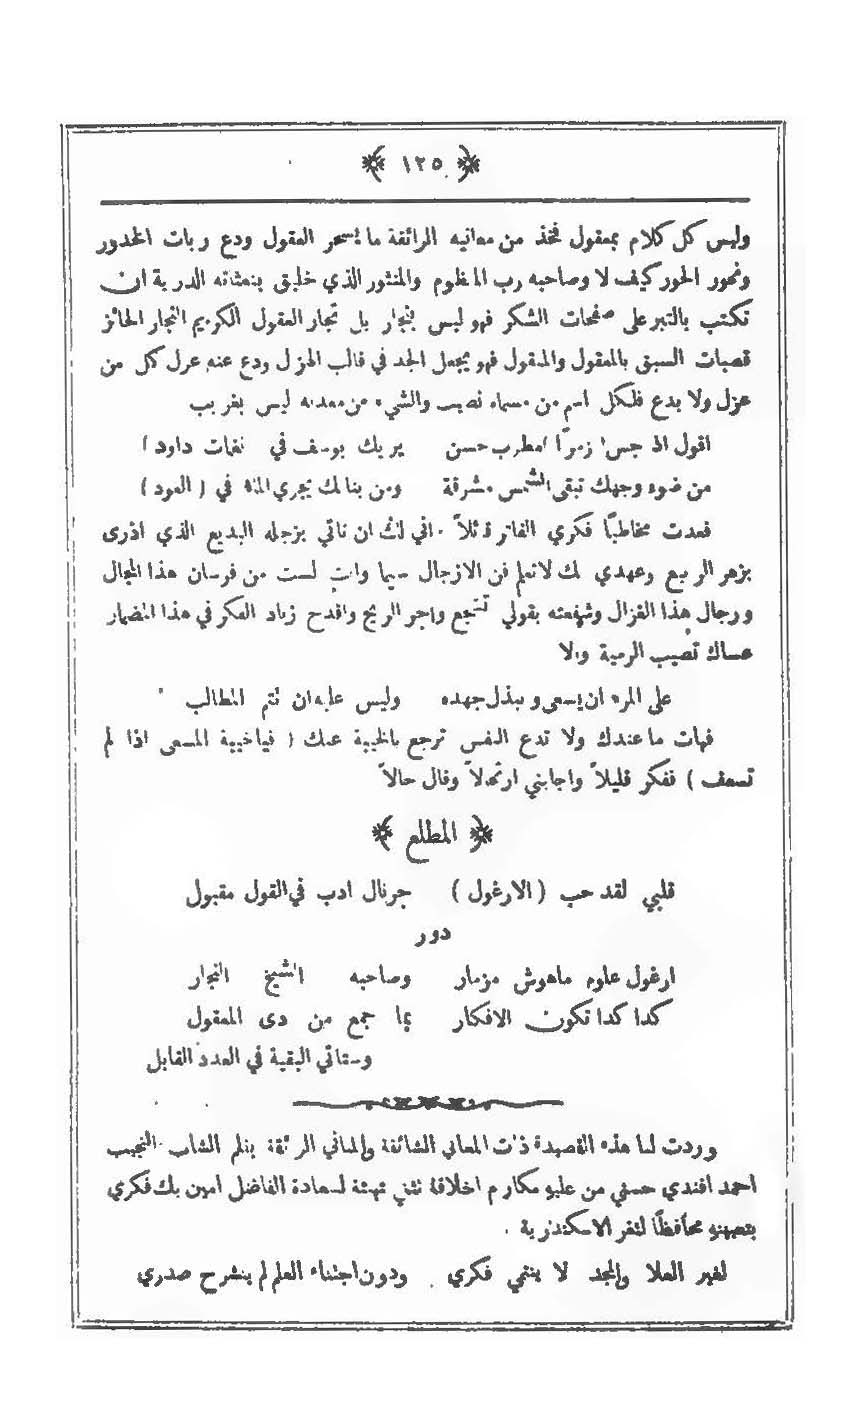 ﴿ ١٢٥ ﴾
وليس كل كلام بمعقول فخذ من معانيه الرائقة ما يسحر العقول ودع ربات الخدور
ونحور الحور كيف لا وصاحبه رب المنظوم والمنثور الذي خليق بنفثاته الدرية ان
تكتب بالتبر على صفحات الشكر فهو ليس بنجار بل تجار العقول الكريم النجار الحائز
قصبات السبق بالمعقول والمنقول فهو يجعل الجد في قالب الهزل ودع عنه عزل كل من
عزل ولا بدع فلكل اسم من مسماه نصيب والشيء من معدنه ليس بغريب
اقول اذ جس زمرًا لمطرب حسن يريك يوسف في نغمات داود )
من ضوء وجهك تبقى الشمس مشرقة ومن بنانك يجري الماء في ( العود )
فعدت مخاطبًا فكري الفاتر قائلاً افي لك ان تاتي بزجله البديع الذي ازرى
بزهر الربيع وعهدي بك لا تعلم فن الازجال سيما وانت لست من فرسان هذا المجال
ورجال هذا الغزال وشفعته بقولي تشجع واجر الريح واقدح زناد الفكر في هذا المضمار
عساك تصيب الرمية والا
على المرء ان يسعى ويبذل جهده وليس عليه ان تتم المطالب
فهات ما عندك ولا تدع النفس ترجع بالخيبة عنك ( فياخيبة المسعى اذا لم
تسعف ) ففكر قليلاً واجابني ارتجالاً وقال حالاً
﴿ المطلع ﴾
قلبي لقد حب ( الارغول ) جرنال ادب في القول مقبول
دور
ارغول علوم ماهوش مزمار وصاحبه الشيخ النجار
كدا كدا تكون الافكار بما جمع من دى المعقول
وستاتي البقية في العدد القابل
وردت لنا هذه القصيدة ذات المعاني الشائقة والمباني الرائقة بقلم الشاب النجيب
احمد افندي حسني من عليو مكارم اخلاقه نثني تهنئة لسعادة الفاضل امين بك فكري
بتعيينه محافظًا لثغر الاسكندرية .
لغير العلا والمجد لا ينتمي فكري ودون اجتناء العلم لم ينشرح صدري